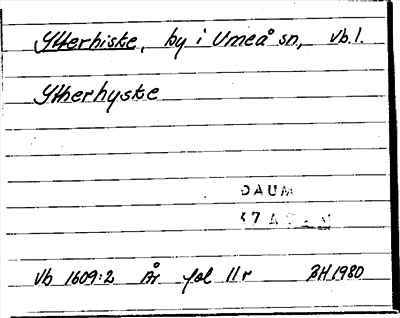 Ytterhiske, by i Umeå sn, Vb.l.
Ytherhyske
DAUM
Vb 1609:2 År fol 11r BH 1980